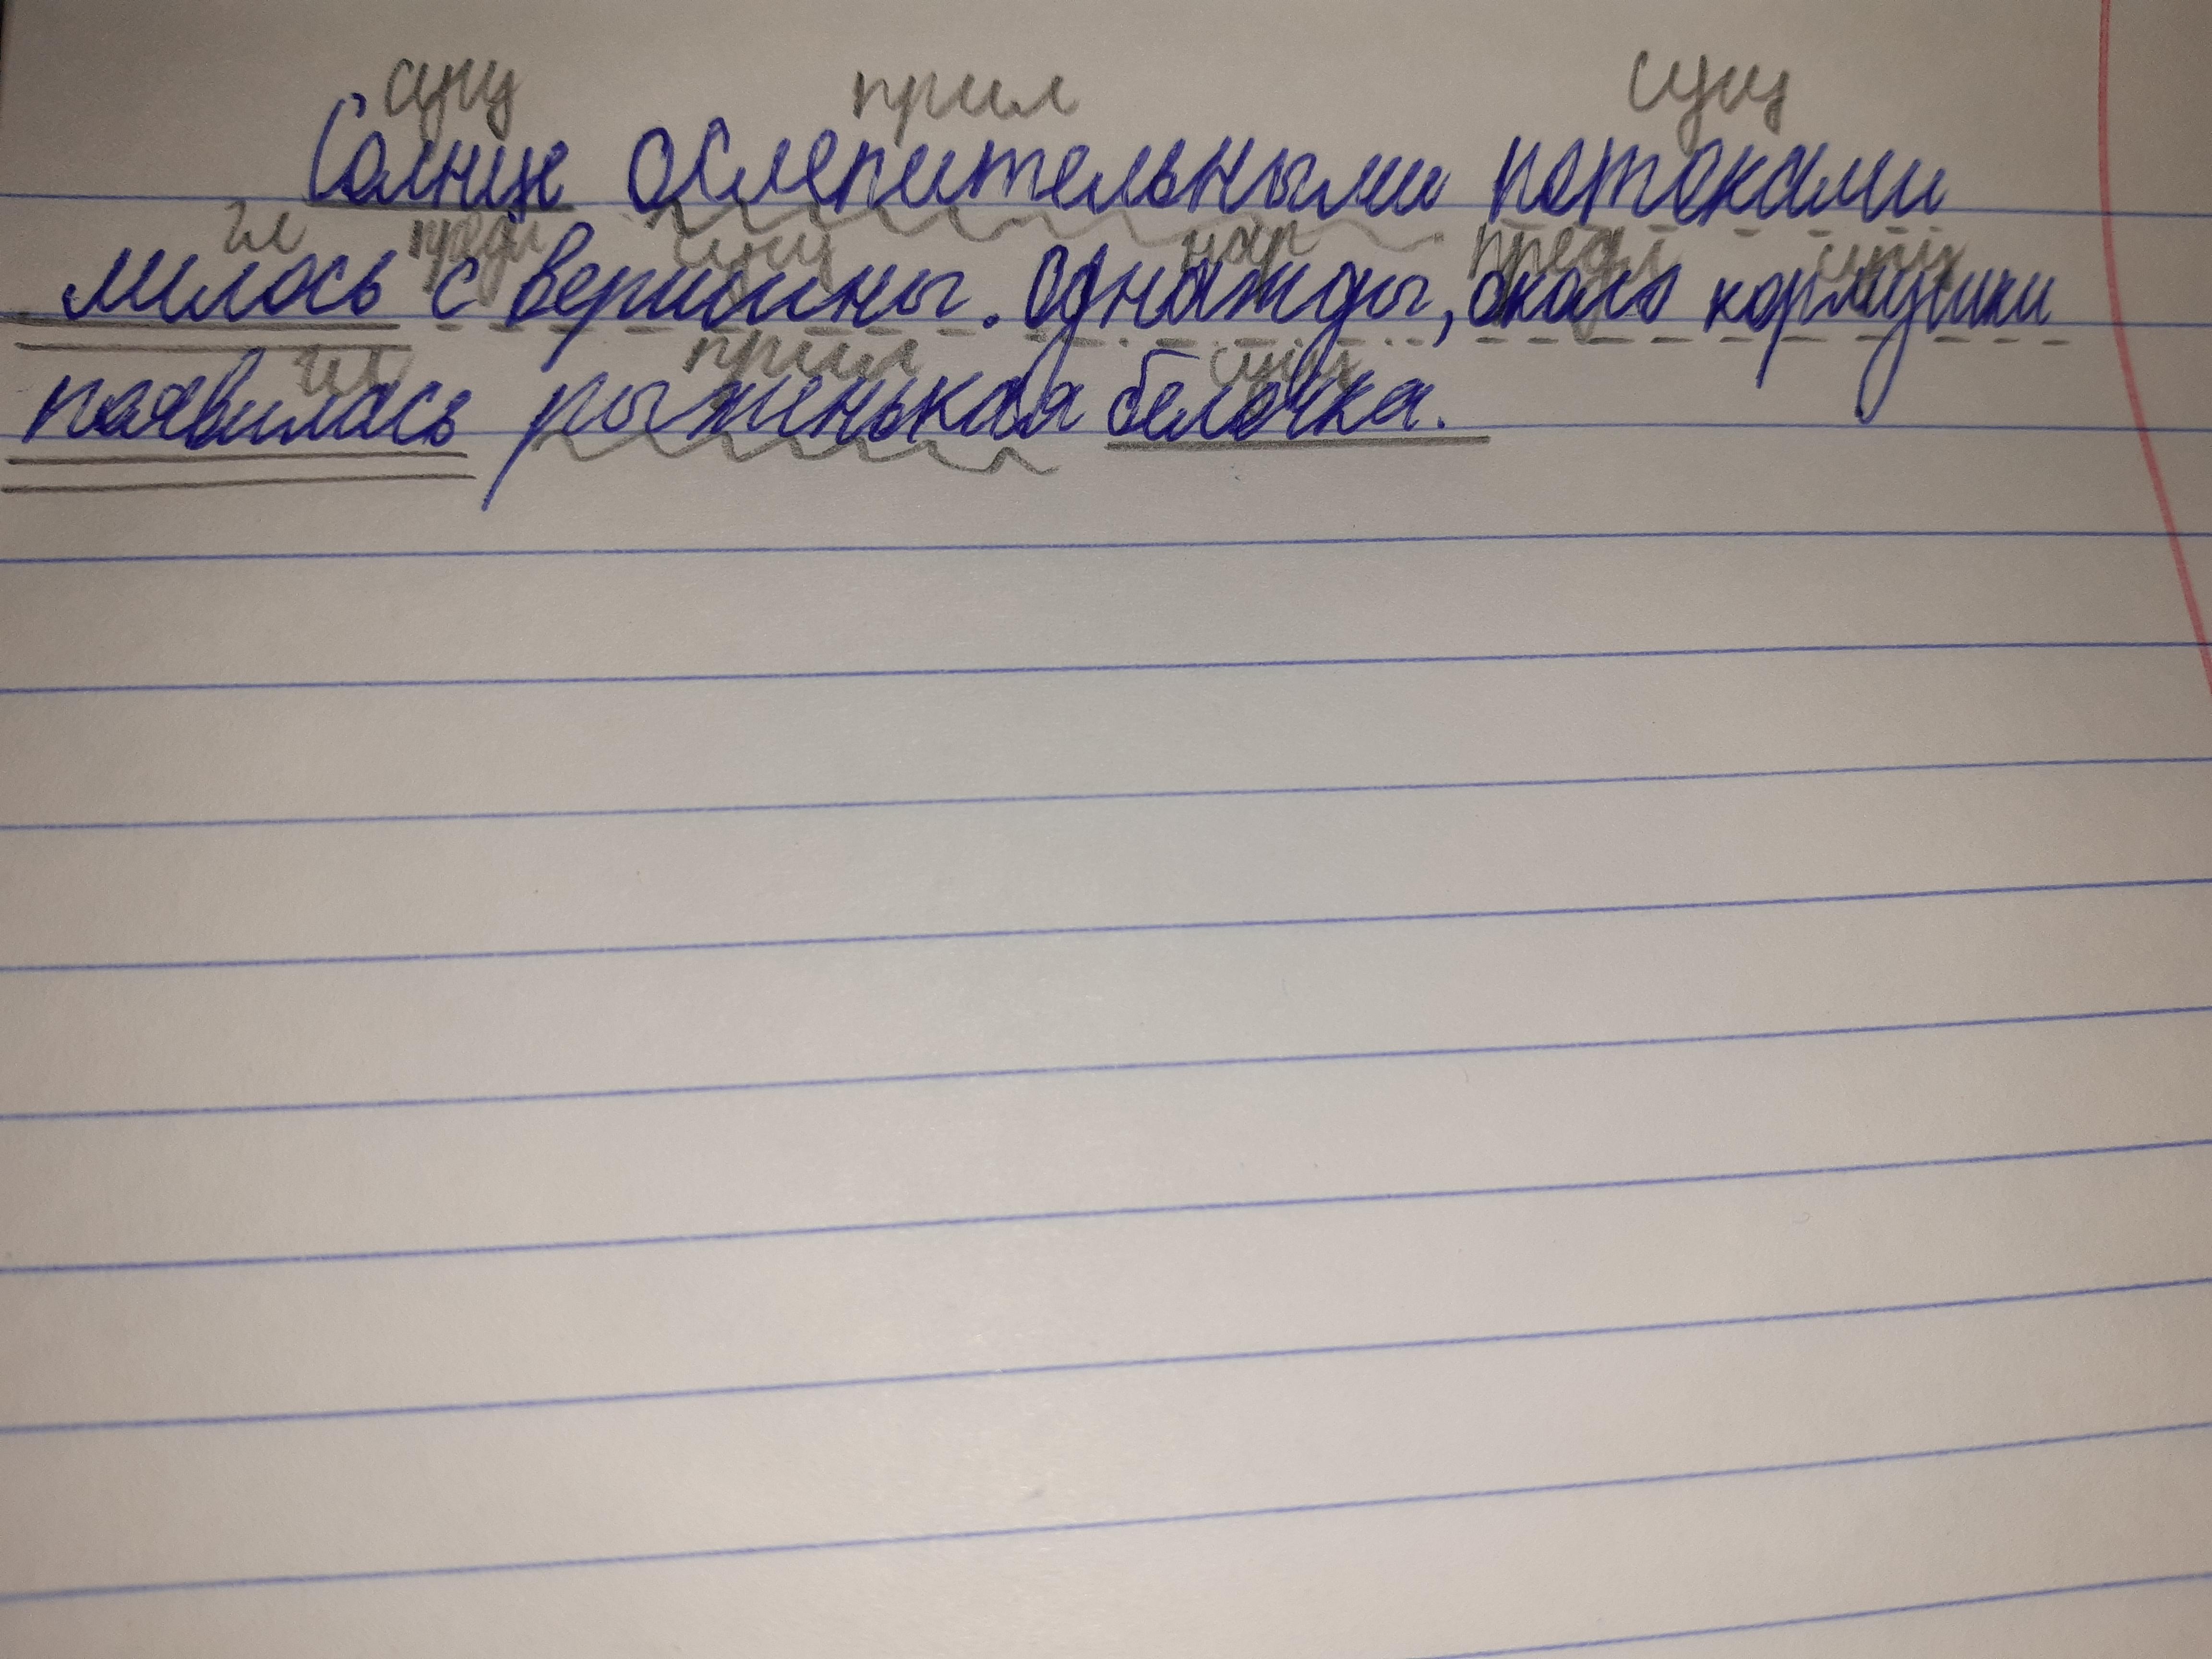 сущ прил сущ
Солнце ослепительными потоками
гл предл сущ нар предл сущ
лилось с вершины. Однажды, около кормушки
гл прил сущ
появилась рыженькая белочка.